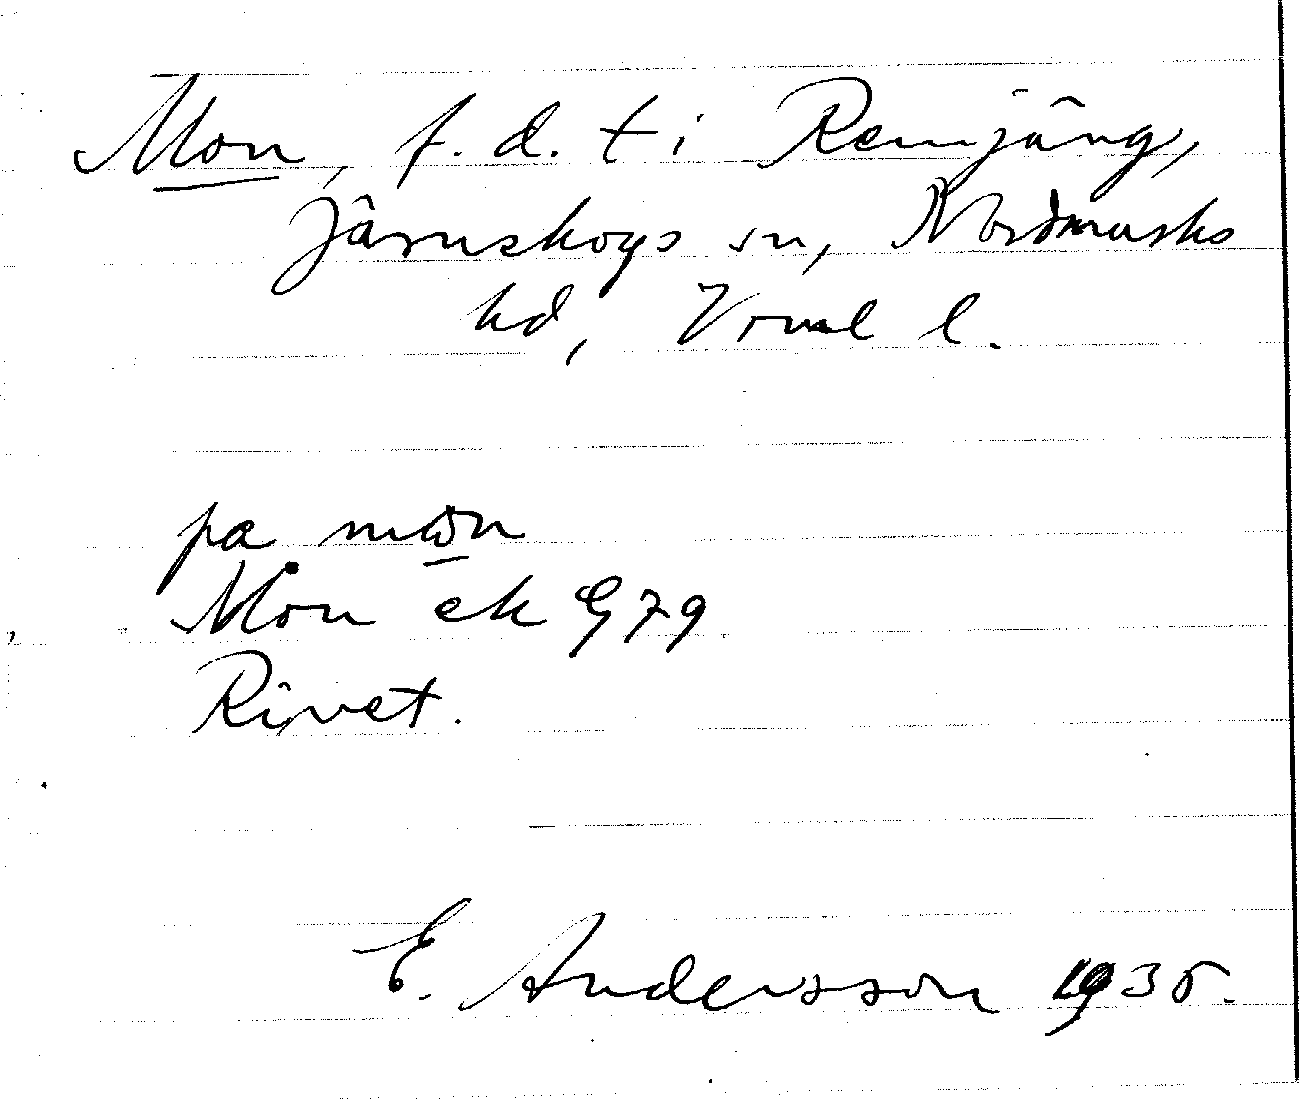 Mon, f. d. t i Remjäng,
Järnskogs sn, Nordmarks
hd, Vrml l.
pa mωn
Mon ek G 79
Rivet.
E. Andersson 1935.